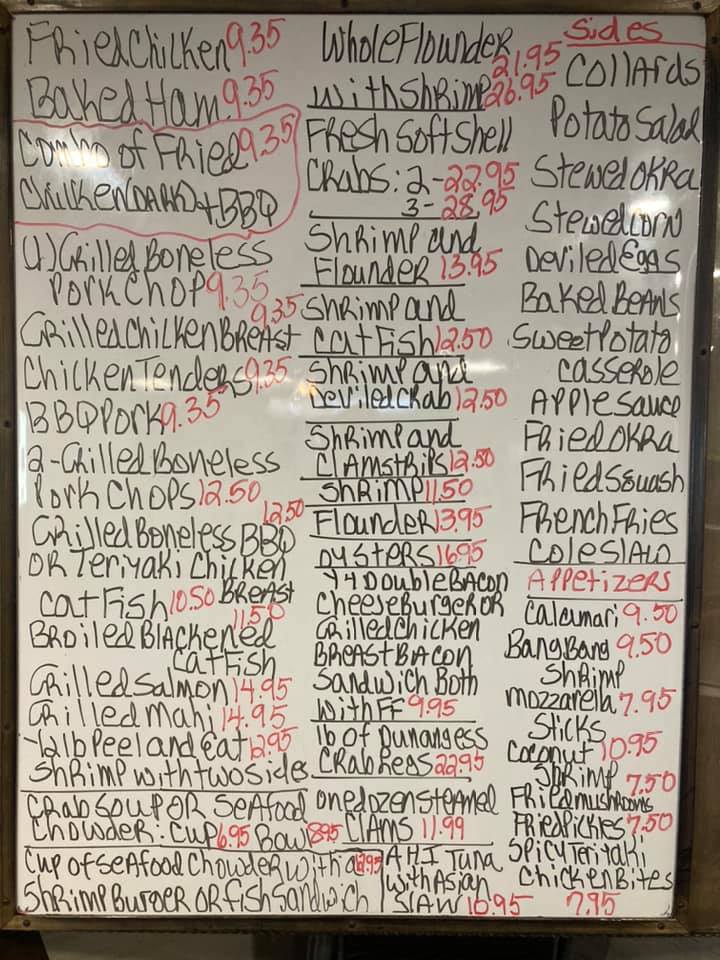 Fried Chicken 9.35
Baked Ham 9.35
Combo of Fried 9.35
Chicken DARK + BBQ
(1) Grilled Boneless
Pork Chop 9.35
9.35
Grilled Chicken BreAst
Chicken Tenders 9.35
BBQ Pork 9.35
2-Grilled Boneless
Pork Chops 12.50
12.50
Grilled Boneless BBQ
OR Teriyaki Chicken
BreAst
CatFish 10.50
11.50
Broiled Blackened
CatFish
Grilled Salmon 14.95
Grilled Mahi 14.95
1/2 lb Peel and Eat 12.95
Shrimp with two sides
Crab Soup OR Seafood
Chowder: Cup 6.95 Bowl 8.95
Cup of seafood Chowder with a 12.95
Shrimp Burger OR fish Sandwich
Whole Flounder
21.95
with Shrimp 26.95
Fresh Soft Shell
Crabs: 2-22.95
3-28.95
Shrimp and
Flounder 13.95
Shrimp and
CatFish 12.50
Shrimp and
Deviled Crab 12.50
Shrimp and
Clamstrips 12.50
Shrimp 11.50
Flounder 13.95
Oysters 16.95
1/4 Double BAcon
Cheese Burger OR
Grilled Chicken
Breast BAcon
Sandwich Both
with FF 9.95
1 lb of Dunangess
Crab Legs 22.95
One dozen Steamed
Clams 11.99
AHI Tuna
with Asian
Slaw 10.95
Sides
Collards
Potato Salad
Stewed Okra
Stewed Corn
Deviled Eggs
Baked Beans
Sweet Potato
Casserole
Apple Sauce
Fried Okra
Fried Squash
French Fries
Coleslaw
Appetizers
Calamari 9.50
Bang Bang 9.50
Shrimp
Mozzarella 7.95
Sticks
Coconut 10.95
Shrimp
7.50
Fried mushrooms
Fried Pickles 7.50
Spicy Teriyaki
Chicken Bites
7.95